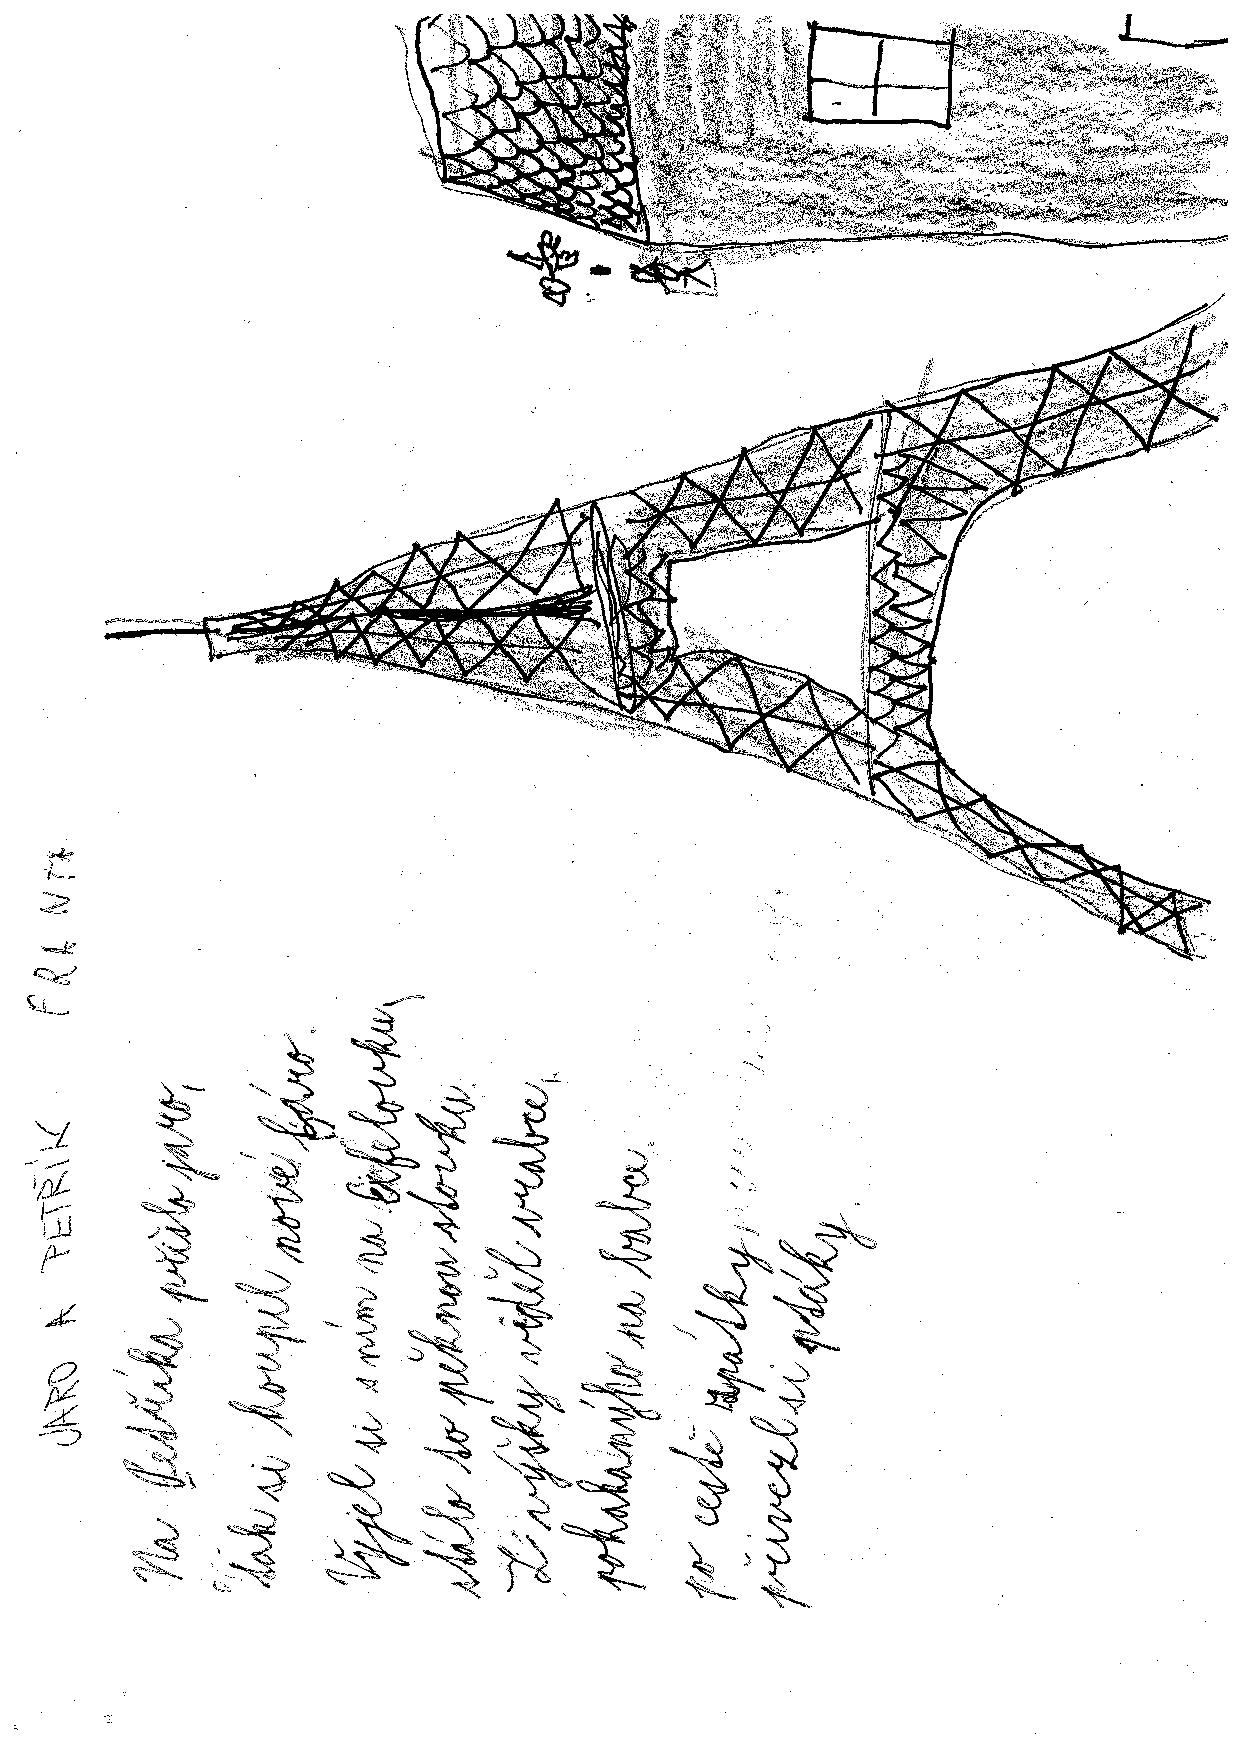 JARO A PETŘÍK FRANTA
Na Petříka přišlo jaro,
tak si koupil nové káro.
Vyjel si s ním na Eifelovku,
stálo to pěknou stovku.
Z výšky viděl vrabce,
pokakanýho na babce.
po cestě zpátky
přivezl si ptáky.